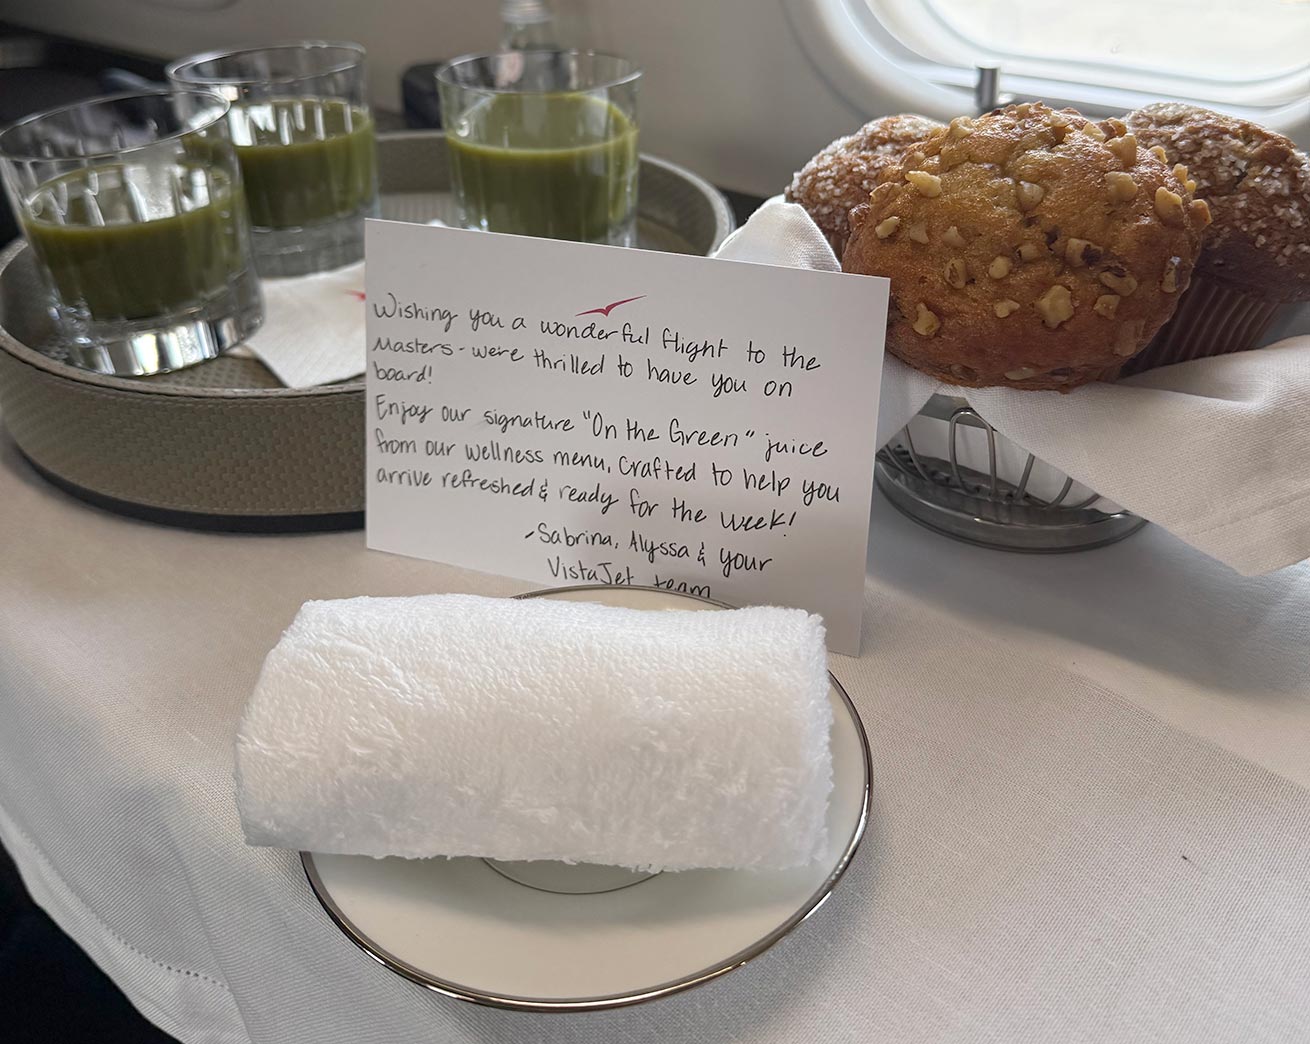 Wishing you a wonderful flight to the
Masters - we're thrilled to have you on
board!
Enjoy our signature "On the Green" juice
from our wellness menu, crafted to help you
arrive refreshed & ready for the week!
-Sabrina, Alyssa & your
VistaJet team